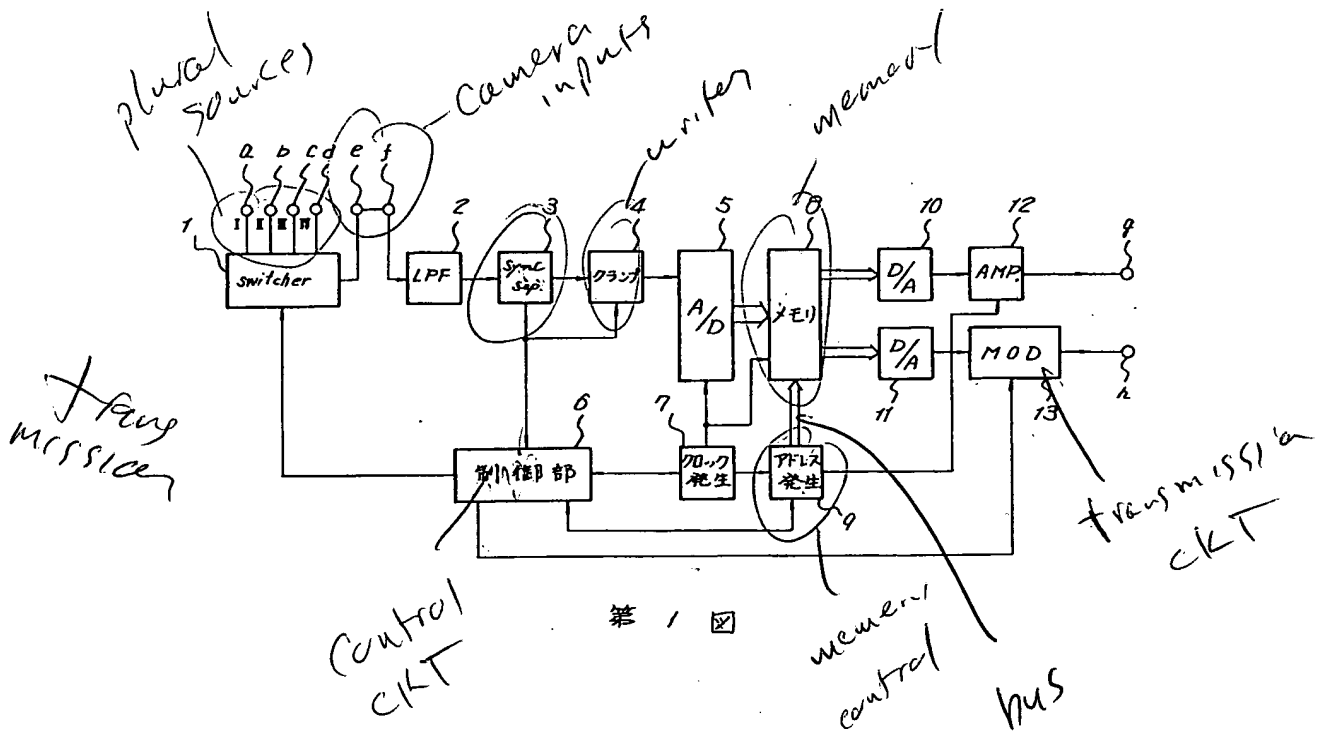 plural
sources
Camera
inputs
writer
memory
a b c d e f
I II III IV
1
switcher
2
LPF
3
Sync
Sep.
4
クランプ
5
A/D
8
メモリ
10
D/A
12
AMP.
g
D/A
11
MOD
13
h
Trans
mission
6
制御部
7
クロック
発生
アドレス
発生
9
transmission
CKT
Control
CKT
第 1 図
memory
control
bus